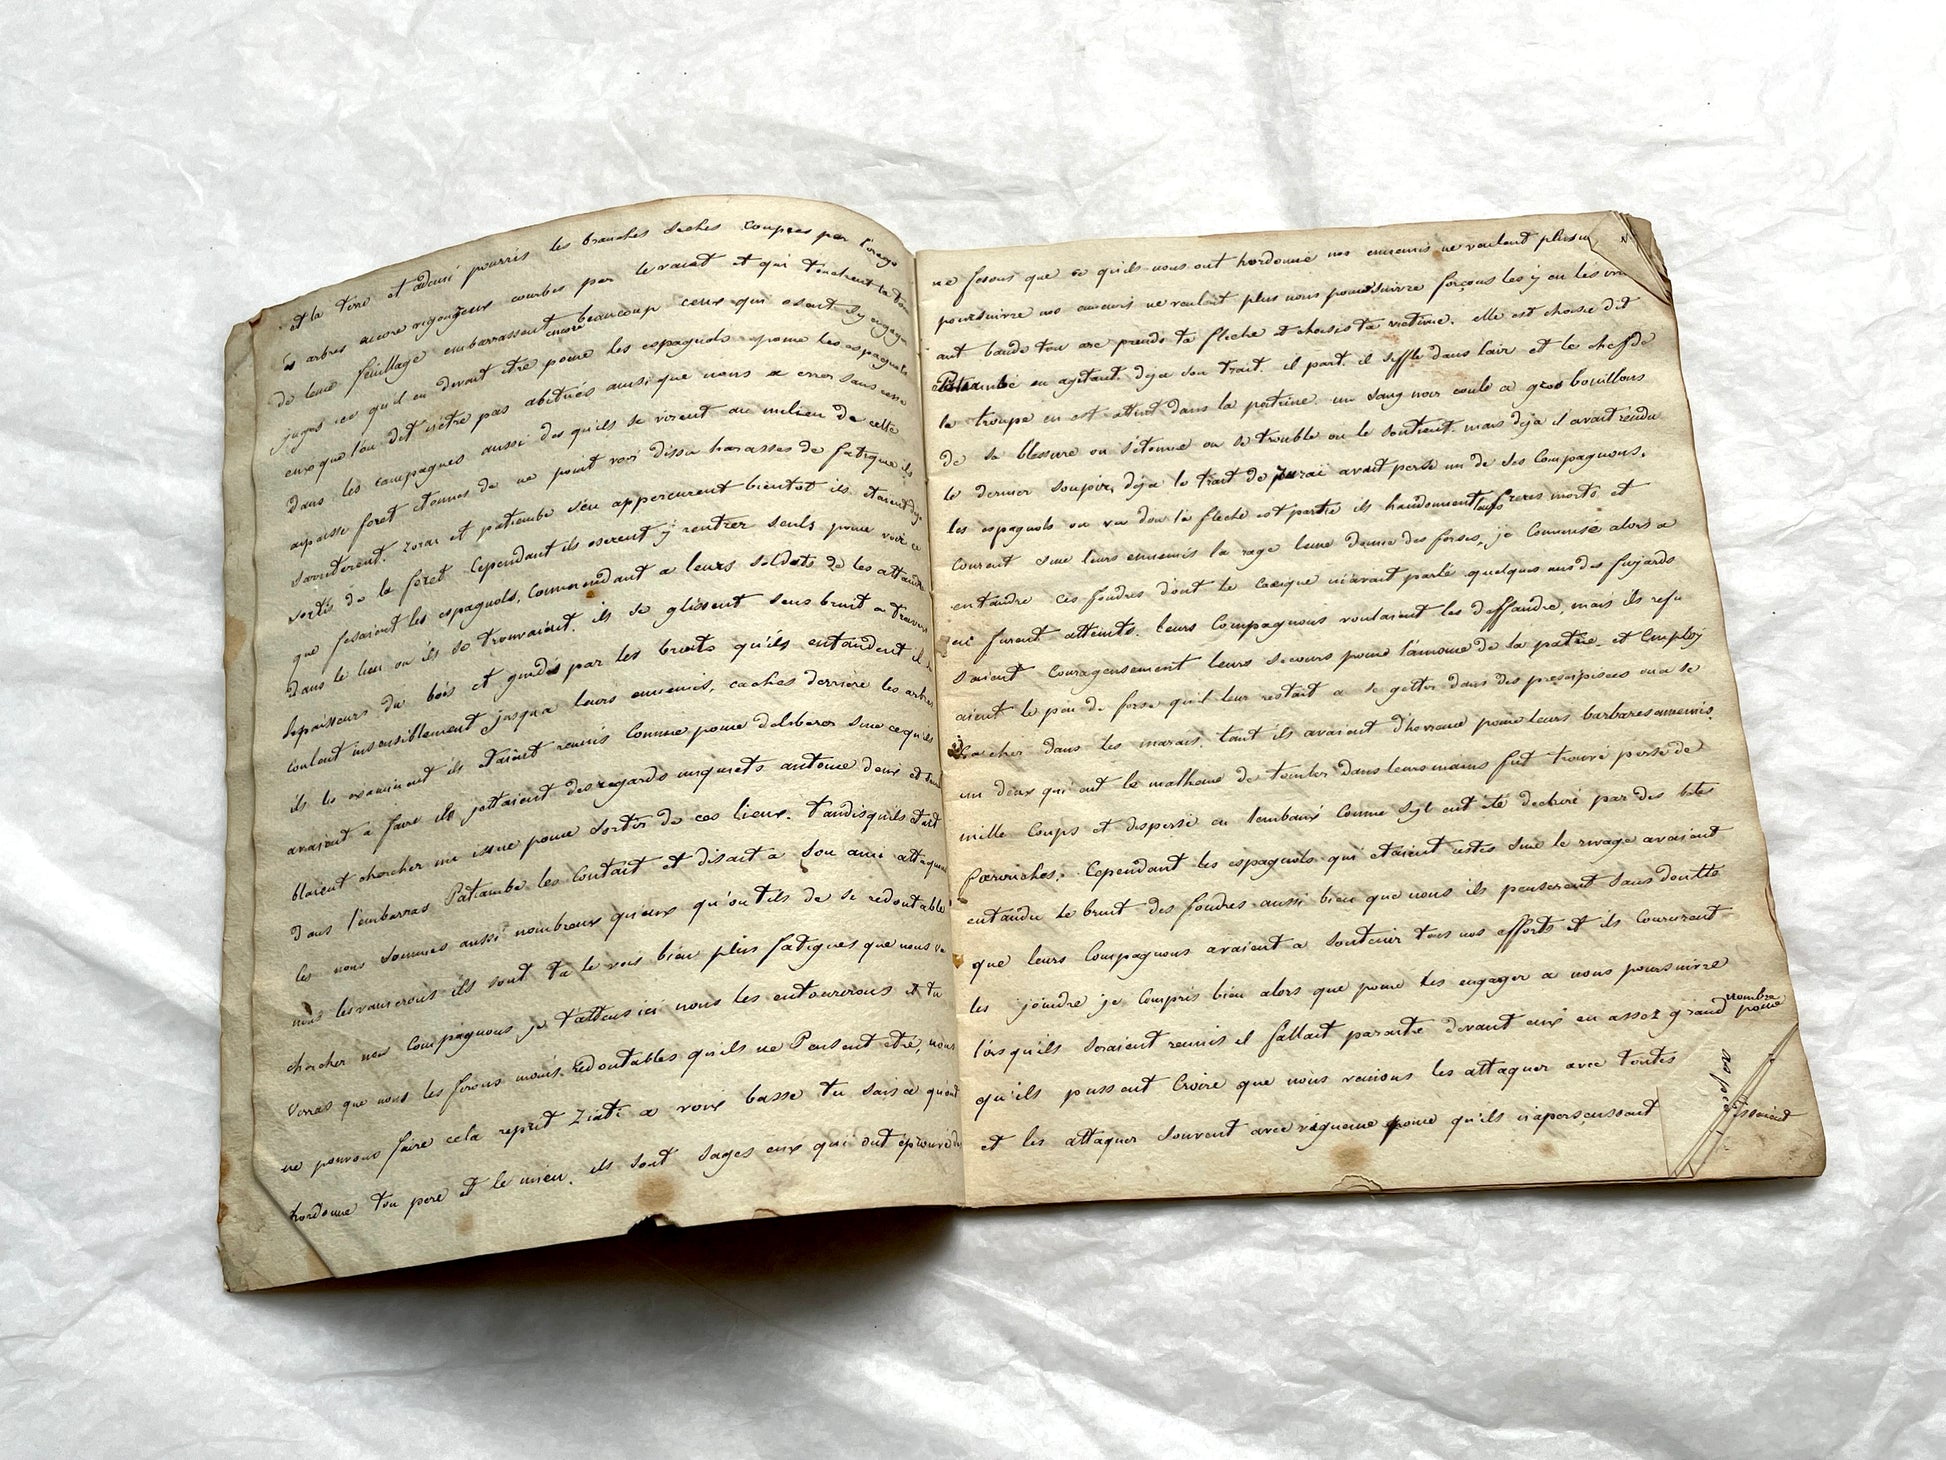 et la terre et a demi pourris les branches seches coupees par l'orage
Les arbres encore vigoureux courbes par le vent et qui touchent la terre
de leur feuillage embarrassent encore beaucoup ceux qui osent s'y engager
jugez ce qu'il en devait etre pour les espagnols pour les espagnols
eux que l'on dit n'etre pas abitués ainsi que nous a errer sans cesse
dans les campagnes aussi des qu'ils se virent au milieu de cette
epaisse foret etonnes de ne point voir d'issu harasses de fatigue ils
s'arreterent. Zorai et patembe s'en apperçurent bientot ils etaient deja
sortis de la foret Cependant ils oserent y rentrer seuls pour voir ce
que fesaient les espagnols, Commendant a leurs soldats de les attendre
dans le lieu ou ils se trouvaient. ils se glissent sans bruit a travers
l'epaisseurs du bois et guidés par les bruits qu'ils entendent il se
coulent insensiblement jusqu'a leurs ennemis, caches derriere les arbres
ils les examinent ils etaient reunis Comme pour deliberer sur ce qu'ils
avaient a faire ils jettaient des regards inquiets autour deux et sem
blaient chercher un issue pour sortir de ces lieux. Tandisquils etait
dans l'embarras Patambe les Contait et disait a son ami attaquons
les nous sommes aussi nombreux qu'eux qu'ont ils de si redoutable
nous les vaincrons ils sont tu le vois bien plus fatigues que nous va
chercher nos Compagnons je t'attens ici nous les entourerons et tu
verras que nous les ferons moins redoutables qu'ils ne Pensent etre, nous
ne pouvons faire cela reprit Ziati a voix basse tu sais a quoi ont
hordonne ton pere et le mien. ils sont sages eux qui ont eprouvé
ne fesons que ce qu'ils nous ont hordonné nos ennemis ne veulent plus nous
poursuivre nos ennemis ne veulent plus nous poursuivre forçons les y en les
ant bande ton arc prends ta fleche et choisis ta victime. elle est choisie dit
Patambé en agitant deja son trait. il part. il siffle dans l'air et le chef de
la troupe en est attint dans la poitrine un sang noir coule a gros bouillons
de sa blessure on s'etonne on se trouble on le soutient. mais deja il avait rendu
le dernier soupir, deja le trait de Zorai avait persé un de ses Compagnons.
les espagnols on vu d'ou la fleche est partie ils handonnent leurs freres morts et
courent sur leurs ennemis la rage leur donne des forses, je Commense alors a
entandre ces foudres d'ont le Cacique m'avait parlé quelques uns des fujards
en furent atteints. leurs Compagnons voulaient les deffandre, mais ils refu
saient Courageusement leurs secours pour l'amour de la patrie et employ
aient le peu de forse qu'il leur restait a se getter dans des presipises ou a se
cacher dans les marais. tant ils avaient d'horreur pour leurs barbares ennemis.
un d'eux qui eut le malheur de tomber dans leurs mains fut trouvé persé de
mille Coups et dispersé en lambaux Comme s'yl eut été dechiré par des betes
farouches. Cependant les espagnols qui etaient restes sur le rivage avaient
entandu le bruit des foudres aussi bien que nous ils penserent sans doutte
que leurs Compagnons avaient a soutenir tous nos efforts et ils Coururent
les joindre je Compris bien alors que pour les engager a nous poursuivre
lorsqu'ils seraient reunis il fallait paraitre devant eux en assez grand nombre pour
qu'ils pussent Croire que nous venions les attaquer avec toutes
et les attaquer souvent avec vigueur pour qu'ils n'aperseussent